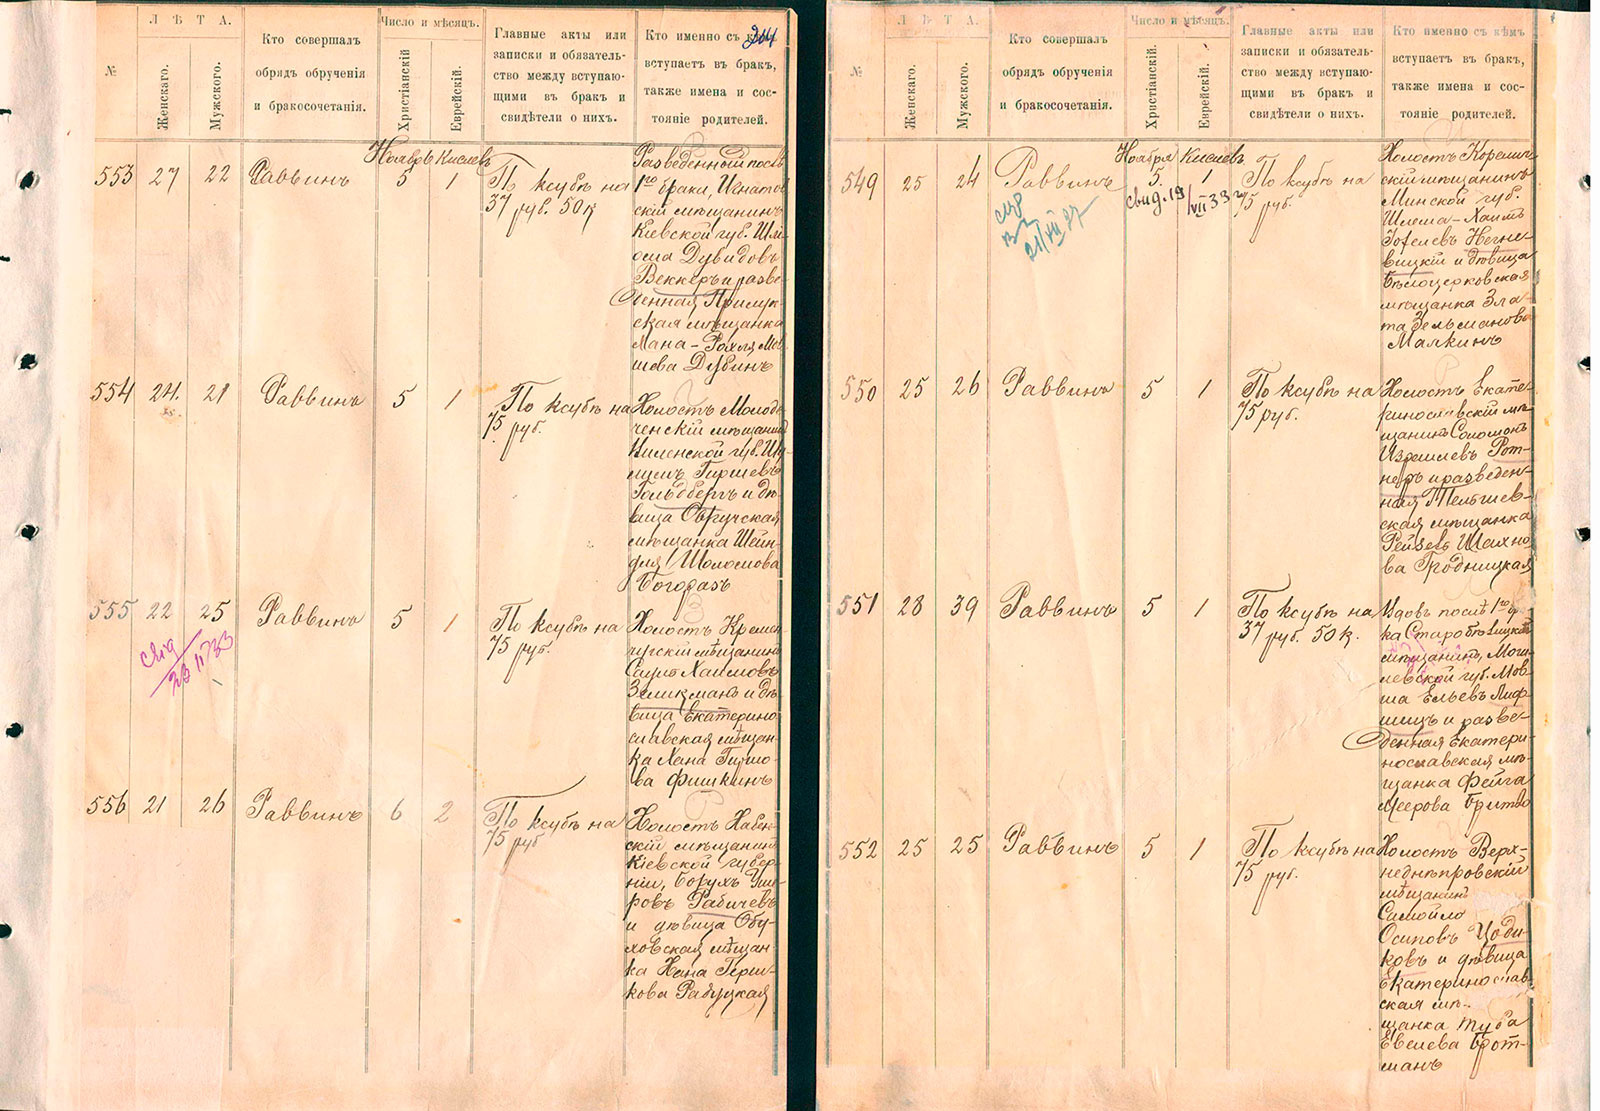 №
Л Ѣ Т А.
Женскаго.
Мужского.
Кто совершалъ
обрядъ обрученія
и бракосочетанія.
Число и мѣсяцъ.
Христіанскій
Еврейскій.
Главные акты или
записки и обязатель-
ство между вступаю-
щими въ бракъ и
свидѣтели о нихъ.
Кто именно съ кѣмъ
вступаетъ въ бракъ,
также имена и сос-
тояніе родителей.
Ноябрь Кислевъ
553 27 22 Раввинъ 5 1
По ксубѣ на
37 руб. 50 к
Разведенный послѣ
1го брака, Игнатов
скій мѣщанинъ
Кіевской губ. Шлі-
ома Дувидовъ
Веккеръ и разве-
денная Прилук
ская мѣщанка
Хана-Рохля Мов
шева Дубинъ
554 24. 21 Раввинъ 5 1
По ксубѣ на
75 руб.
Холостъ Молоде
ченскій мѣщанинъ
Виленской губ.
Гиршевъ
Гольдбергъ и дѣ-
вица Овручская
мѣщанка Шейн-
для Шоломова
Богоразъ
555 22 25 Раввинъ 5 1
По ксубѣ на
75 руб.
Холостъ Кремен-
чугскій мѣщанинъ
Саулъ Хаимовъ
Зеликманъ и дѣ-
вица Екатерино
славская мѣщан-
ка Хана Гиршо-
ва Фишкинъ
556 21 26 Раввинъ 6 2
По ксубѣ на
75 руб
Холостъ Кабен-
скій мѣщанинъ
Кіевской губер-
ніи, Борухъ Уше-
ровъ Рабичевъ
и дѣвица Обу-
ховская мѣщан-
ка Хана Герш-
кова Рабуцкая
№
Л Ѣ Т А.
Женскаго.
Мужского.
Кто совершалъ
обрядъ обрученія
и бракосочетанія.
Число и мѣсяцъ.
Христіанскій.
Еврейскій.
Главные акты или
записки и обязатель-
ство между вступаю-
щими въ бракъ и
свидѣтели о нихъ.
Кто именно съ кѣмъ
вступаетъ въ бракъ,
также имена и сос-
тояніе родителей.
Ноября Кислевъ
549 25 24 Раввинъ 5. 1
свид. 19/VII 33 г
21/VII 37
По ксубѣ на
75 руб.
Холостъ Корелич-
скій мѣщанинъ
Минской губ.
Шлема-Хаимъ
Іоселевъ Негне-
вицкій и дѣвица
Бѣлоцерковская
мѣщанка Зла-
та Зельманова
Малкинъ
550 25 26 Раввинъ 5 1
По ксубѣ на
75 руб.
Холостъ Екате-
ринославскій мѣ-
щанинъ Соломонъ
Израилевъ Рот-
неръ и разведен-
ная Тельшев-
ская мѣщанка
Рейзель Шахно-
ва Гродницкая
551 28 39 Раввинъ 5 1
По ксубѣ на
37 руб. 50 к.
Вдовъ послѣ 1го бр
ка Старобѣлицкій
мѣщанинъ, Моги-
левской губ. Мов-
ша Ельевъ Лиф-
шицъ и разве-
денная Екатери-
нославская мѣ-
щанка Фейга
Меерова Бритво
552 25 25 Раввинъ 5 1
По ксубѣ на
75 руб.
Холостъ Верх-
неднѣпровскій
мѣщанинъ
Самойло
Осиповъ Цоди-
ковъ и дѣвица
Екатеринослав-
ская мѣ-
щанка Туба
Евелева Брот-
манъ